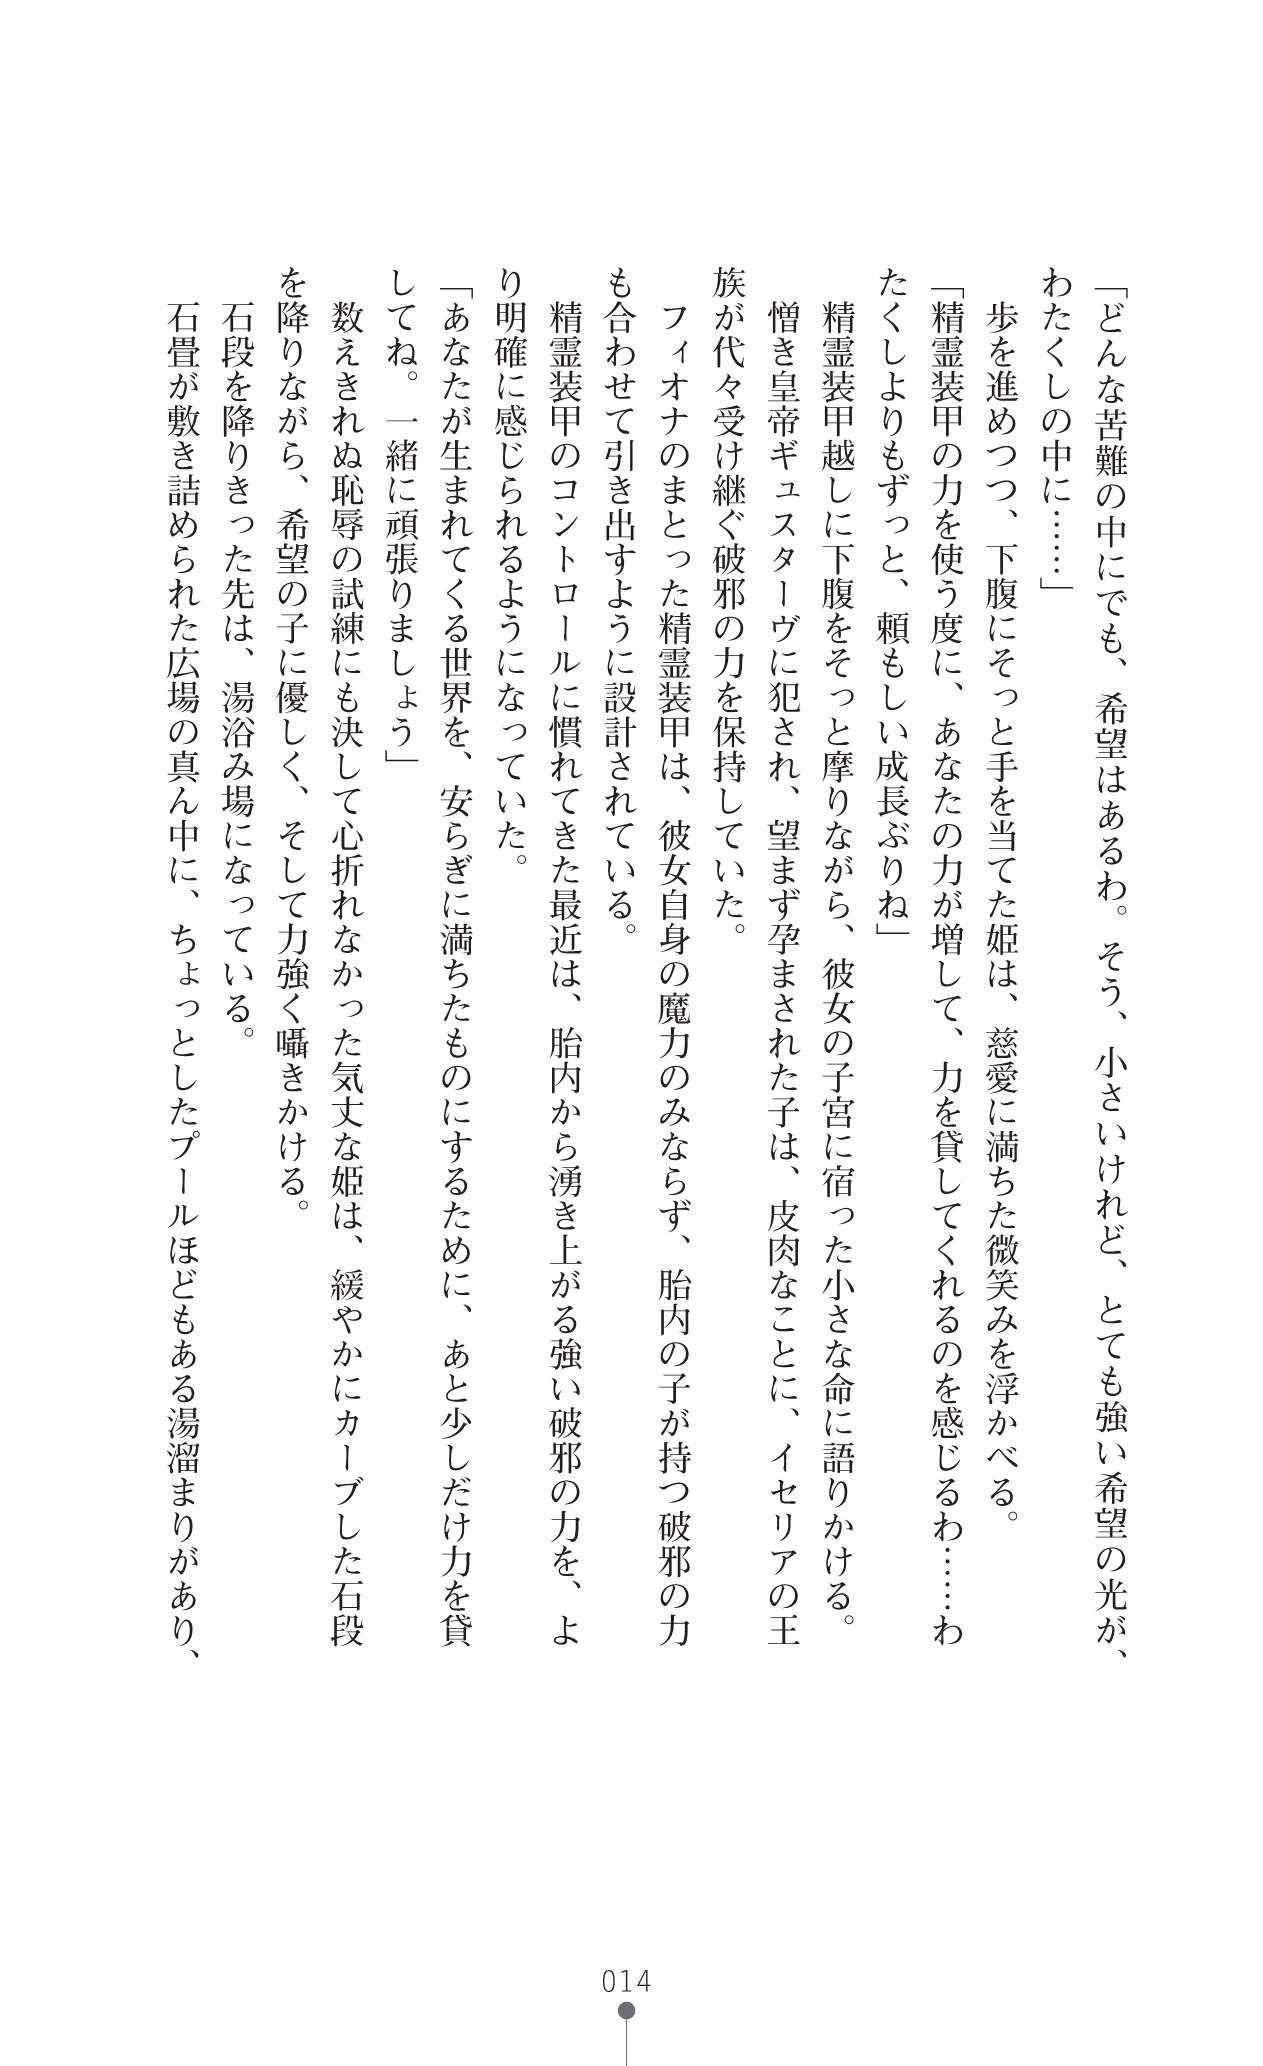 「どんな苦難の中にでも、希望はあるわ。そう、小さいけれど、とても強い希望の光が、
わたくしの中に……」
　歩を進めつつ、下腹にそっと手を当てた姫は、慈愛に満ちた微笑みを浮かべる。
「精霊装甲の力を使う度に、あなたの力が増して、力を貸してくれるのを感じるわ……わ
たくしよりもずっと、頼もしい成長ぶりね」
　精霊装甲越しに下腹をそっと摩りながら、彼女の子宮に宿った小さな命に語りかける。
　憎き皇帝ギュスターヴに犯され、望まず孕まされた子は、皮肉なことに、イセリアの王
族が代々受け継ぐ破邪の力を保持していた。
　フィオナのまとった精霊装甲は、彼女自身の魔力のみならず、胎内の子が持つ破邪の力
も合わせて引き出すように設計されている。
　精霊装甲のコントロールに慣れてきた最近は、胎内から湧き上がる強い破邪の力を、よ
り明確に感じられるようになっていた。
「あなたが生まれてくる世界を、安らぎに満ちたものにするために、あと少しだけ力を貸
してね。一緒に頑張りましょう」
　数えきれぬ恥辱の試練にも決して心折れなかった気丈な姫は、緩やかにカーブした石段
を降りながら、希望の子に優しく、そして力強く囁きかける。
　石段を降りきった先は、湯浴み場になっている。
　石畳が敷き詰められた広場の真ん中に、ちょっとしたプールほどもある湯溜まりがあり、
014